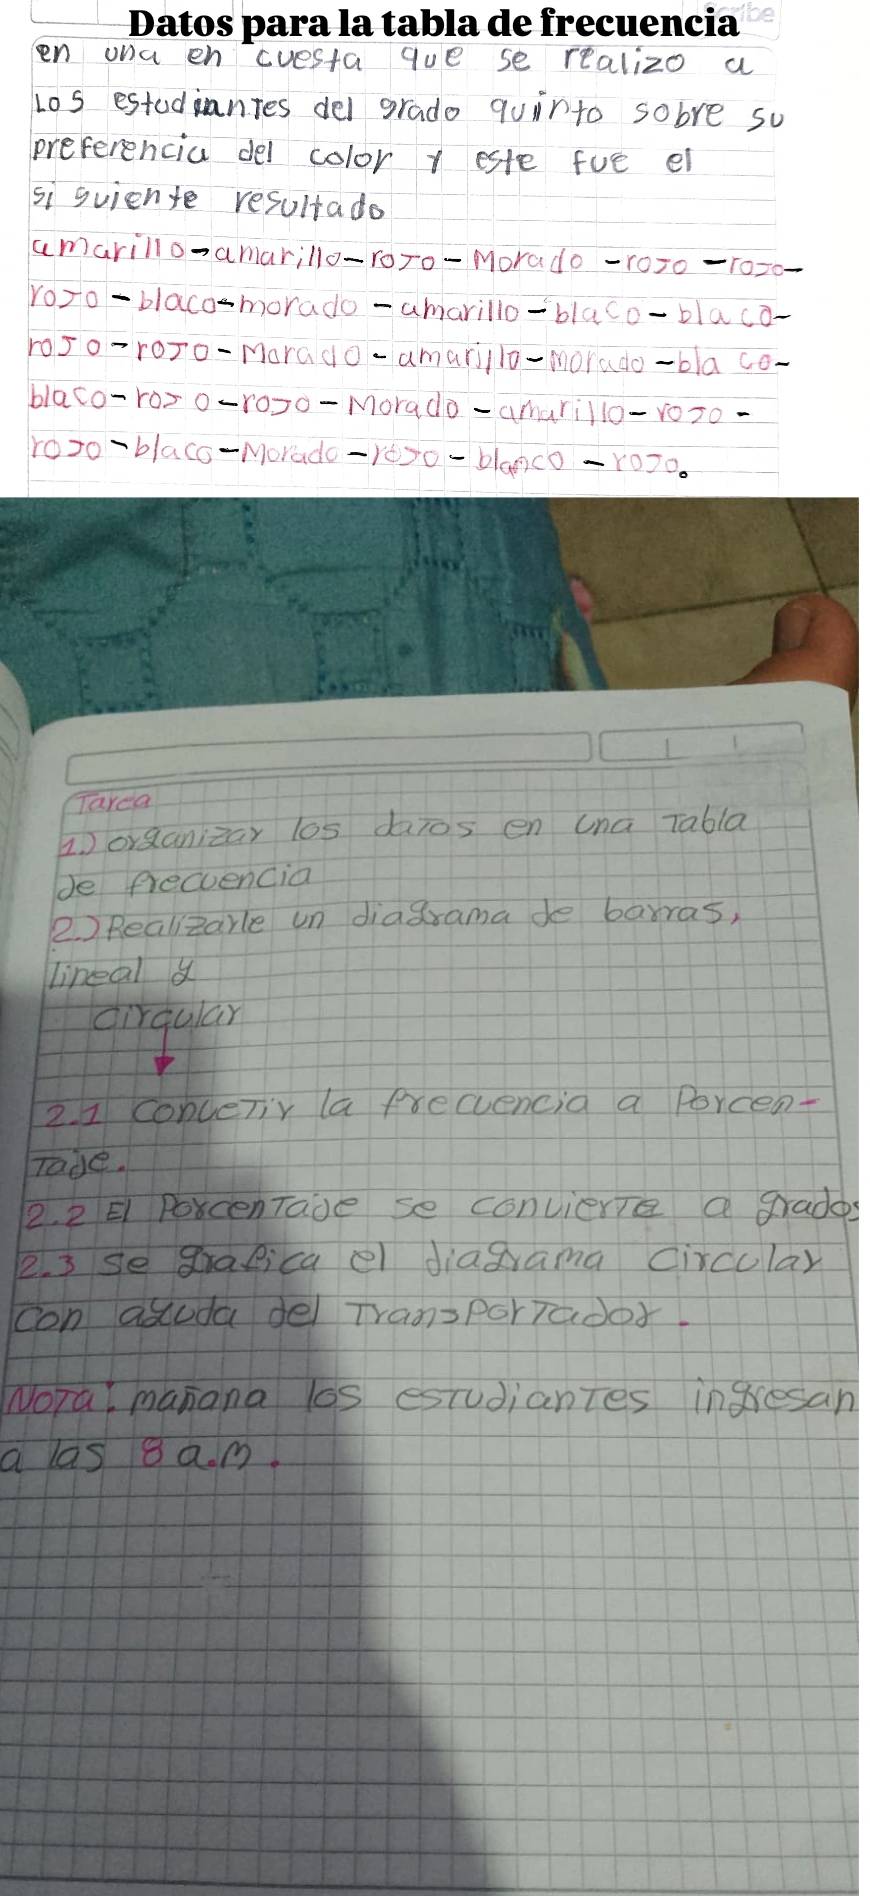 Datos para la tabla de frecuencia
en una en cuesta que se realizo a
Los estudiantes del grado quinto sobre su
preferencia del color y este fue el
si guiente resultado
amarillo-amarillo-rojo-Morado-rojo-rojo-
rojo-blaco-morado-amarillo-blaco-blaco-
rojo-rojo-Morado-amarillo-morado-blaco-
blaco-rojo-rojo-Morado-amarillo-rojo-
rojo-blaco-Morado-rojo-blanco-rojo.
Tarea
1.) organizar los datos en una Tabla
de frecuencia
2.) Realizarle un diagrama de barras,
lineal y
circular
2.1 convetir la frecuencia a Porcen-
Taje.
2.2 El PorcenTaje se convierte a grados
2.3 se grafica el diagrama circular
con ayuda del TransporTador.
Nota: mañana los estudiantes ingresan
a las 8 a.m.